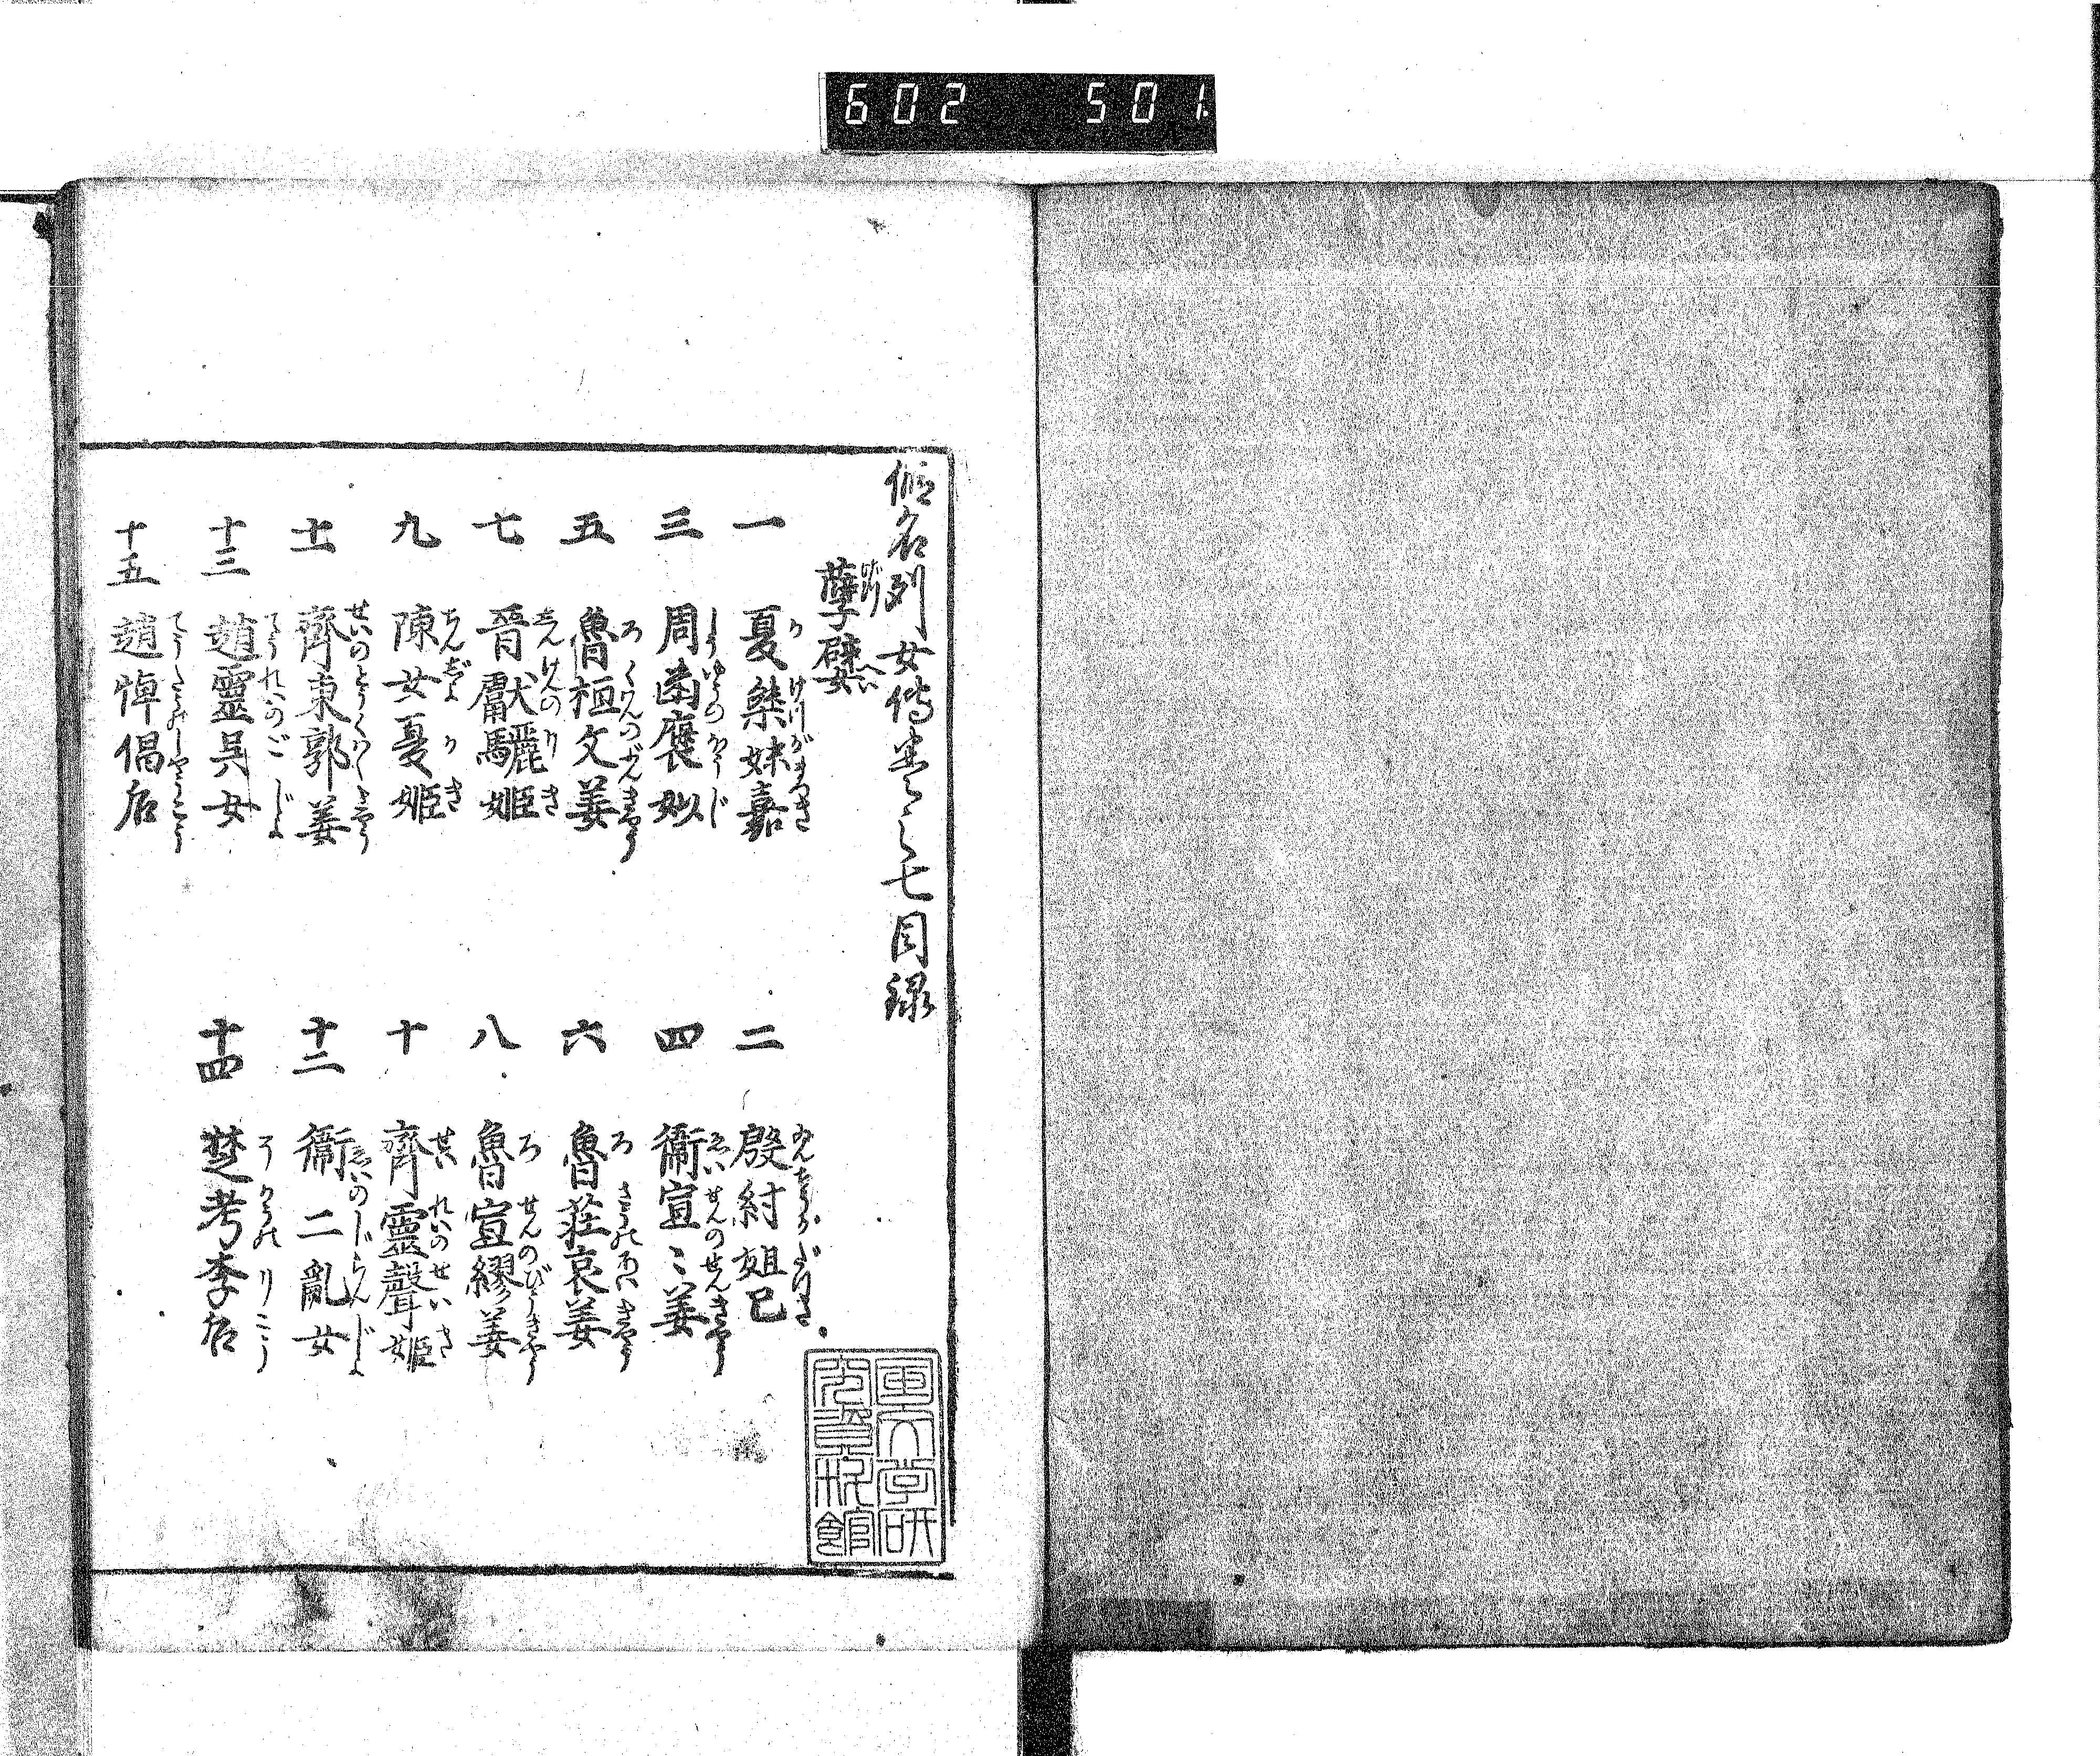 602 501
仮名列女傳巻之七目録
孽嬖
一 夏桀妹嘉
二 殷紂妲己
三 周幽褒姒
四 衞宣〻姜
五 魯桓文姜
六 魯莊哀姜
七 晉獻驪姬
八 魯宣繆姜
九 陳女夏姬
十 齊靈聲姬
十一 齊東郭姜
十二 衞二亂女
十三 趙靈吳女
十四 楚考李后
十五 趙悼倡后
国文学研
究資料館